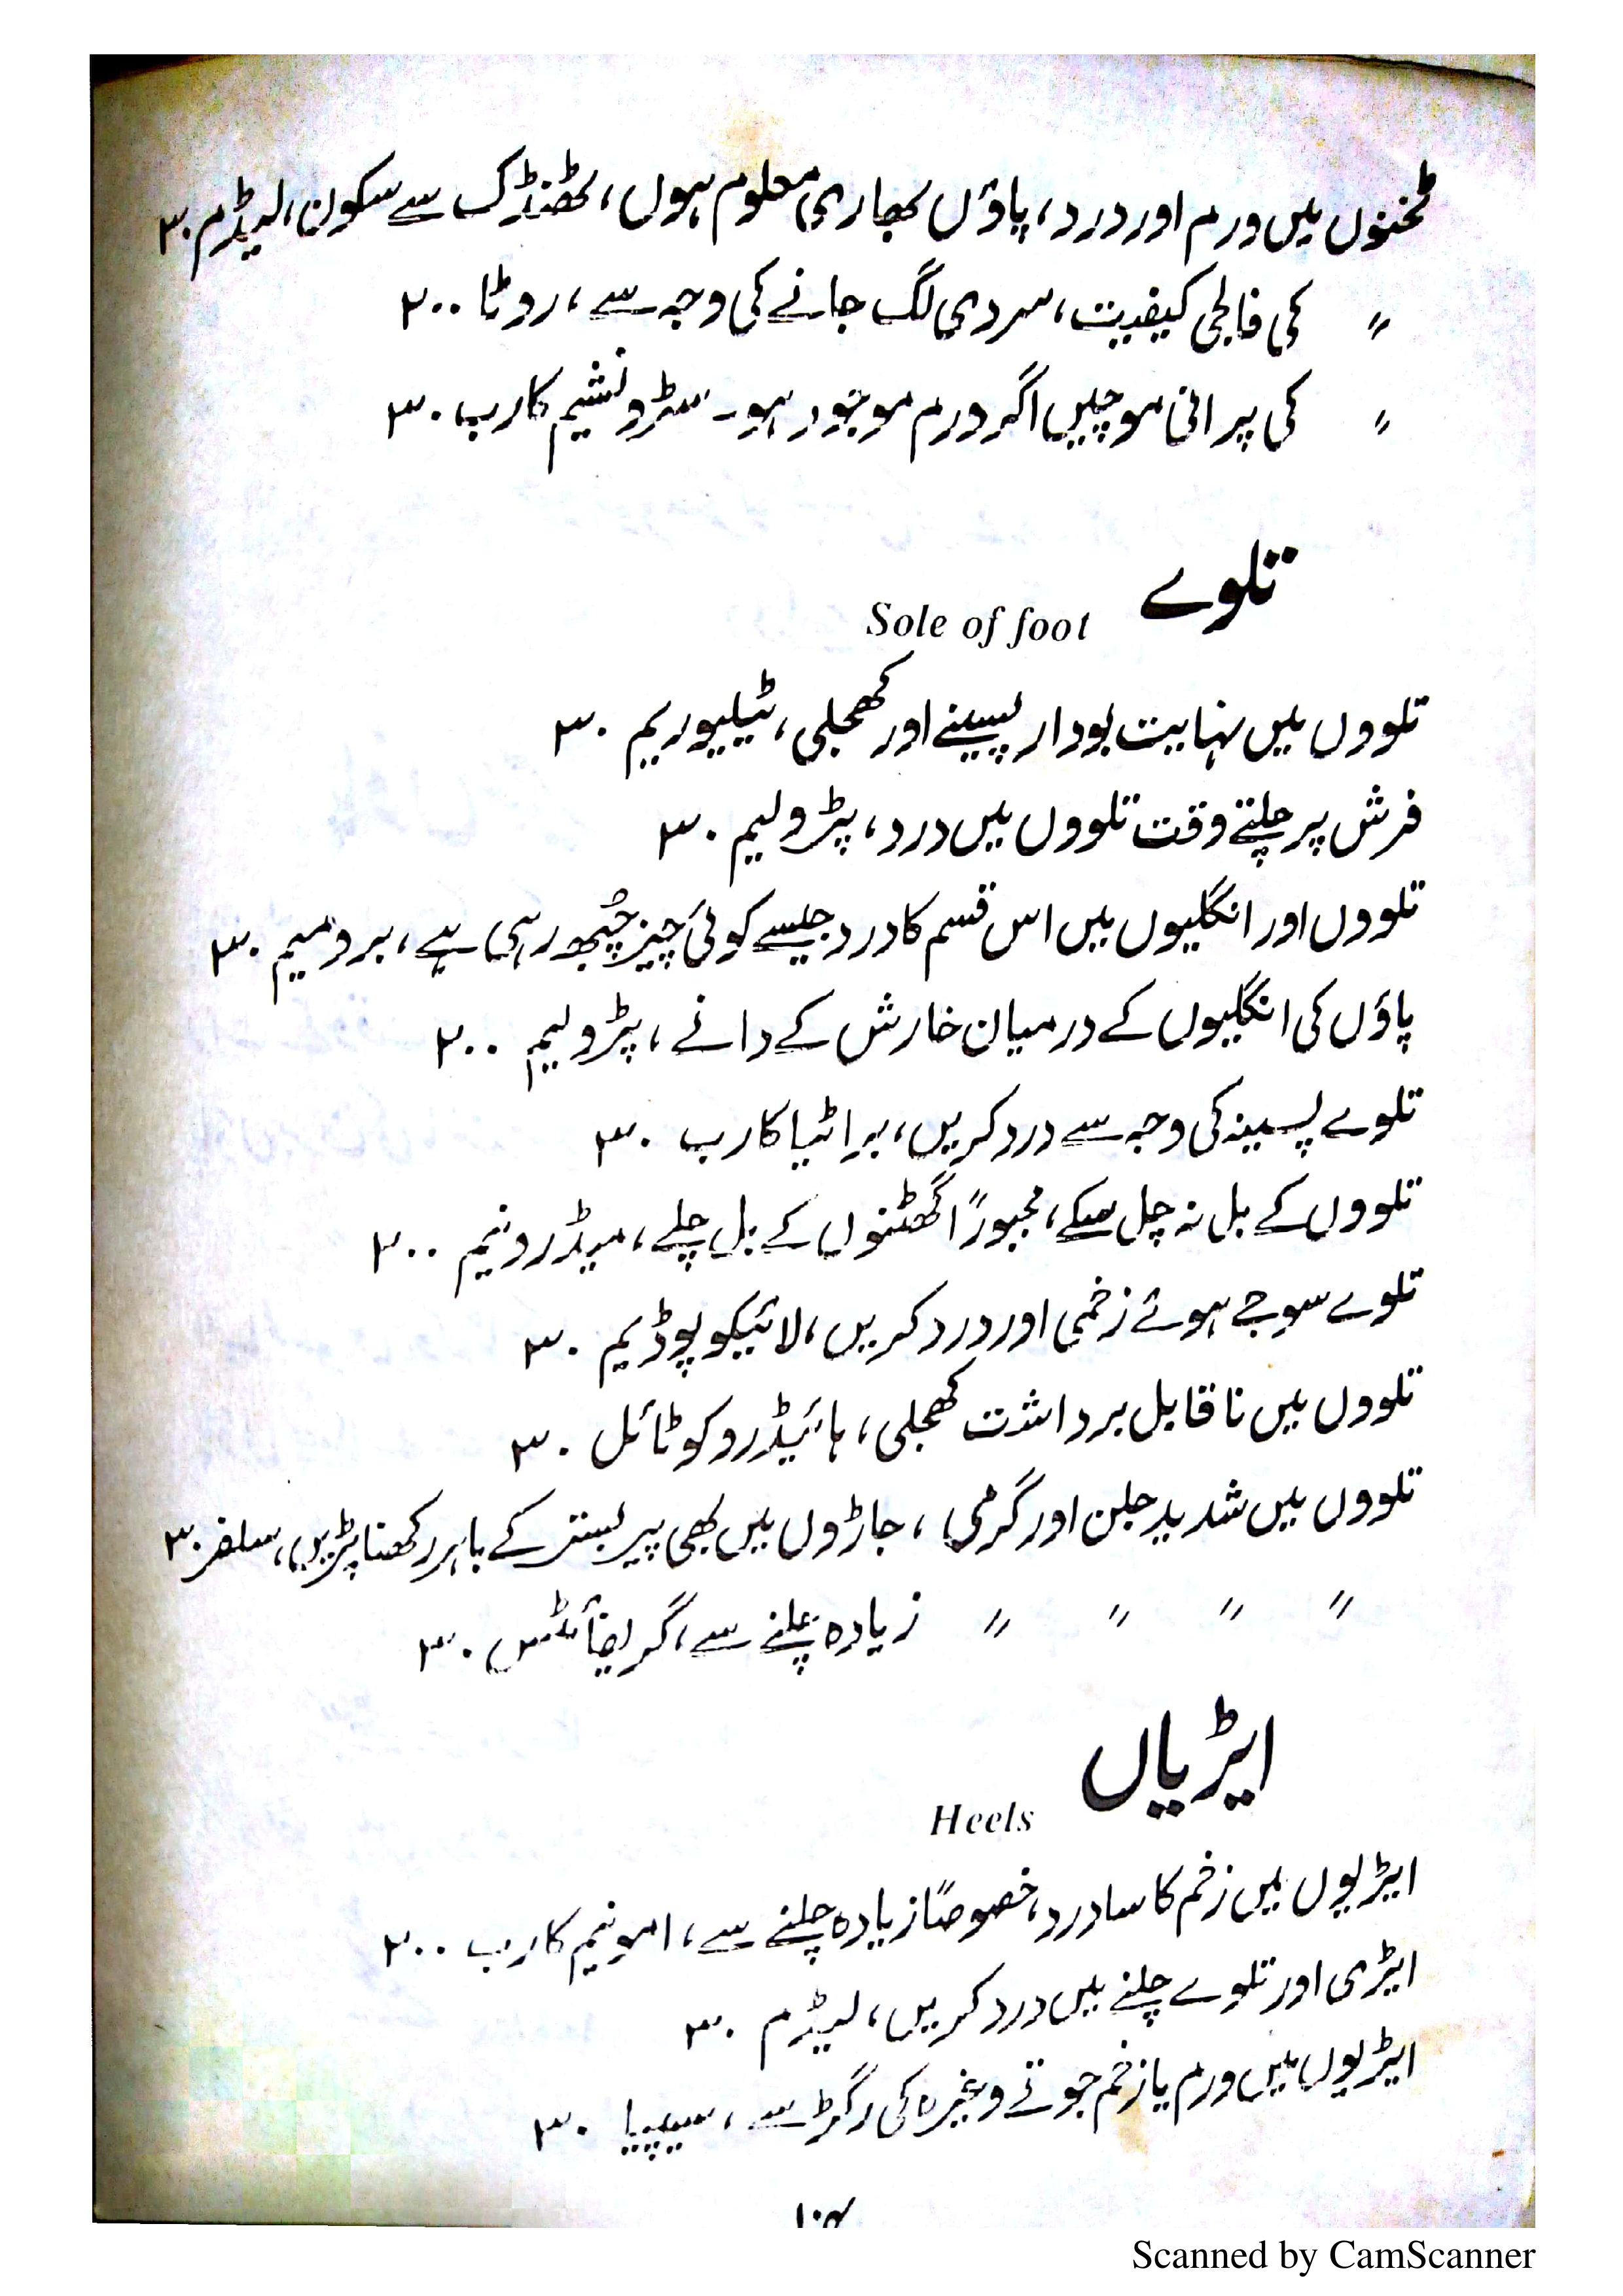 ٹخنوں میں ورم اور درد، پاؤں بھاری معلوم ہوں، ٹھنڈک سے سکون، لیڈم ۳۰
〃 کی فالجی کیفیت، سردی لگ جانے کی وجہ سے، روٹا ۲۰۰
〃 کی پرانی موچیں اگر ورم موجود ہو۔ سٹرونشیم کارب ۳۰
تلوے
Sole of foot
تلووں میں نہایت بودار پسینے اور کھجلی، ٹیلیوریم ۳۰
فرش پر چلتے وقت تلووں میں درد، پٹرولیم ۳۰
تلووں اور انگلیوں میں اس قسم کا درد جیسے کوئی چیز چُبھ رہی ہے، برومیم ۳۰
پاؤں کی انگلیوں کے درمیان خارش کے دانے، پٹرولیم ۲۰۰
تلوے پسینہ کی وجہ سے درد کریں، برائٹیا کارب ۳۰
تلووں کے بل نہ چل سکے، مجبوراً گھٹنوں کے بل چلے، میڈرونیم ۲۰۰
تلوے سوجے ہوئے زخمی اور درد کریں، لائیکوپوڈیم ۳۰
تلووں میں ناقابل برداشت کھجلی، ہائیڈروکوٹائل ۳۰
تلووں میں شدید جلن اور گرمی، جاڑوں میں بھی پیر بستر کے باہر رکھنا پڑیں، سلفر ۳۰
〃 〃 〃 〃 زیادہ چلنے سے، گریفائٹس ۳۰
ایڑیاں
Heels
ایڑیوں میں زخم کا سا درد، خصوصاً زیادہ چلنے سے، امونیم کارب ۲۰۰
ایڑی اور تلوے چلنے میں درد کریں، لیڈم ۳۰
ایڑیوں میں ورم یا زخم جوتے وغیرہ کی رگڑ سے، سیپیا ۳۰
Scanned by CamScanner